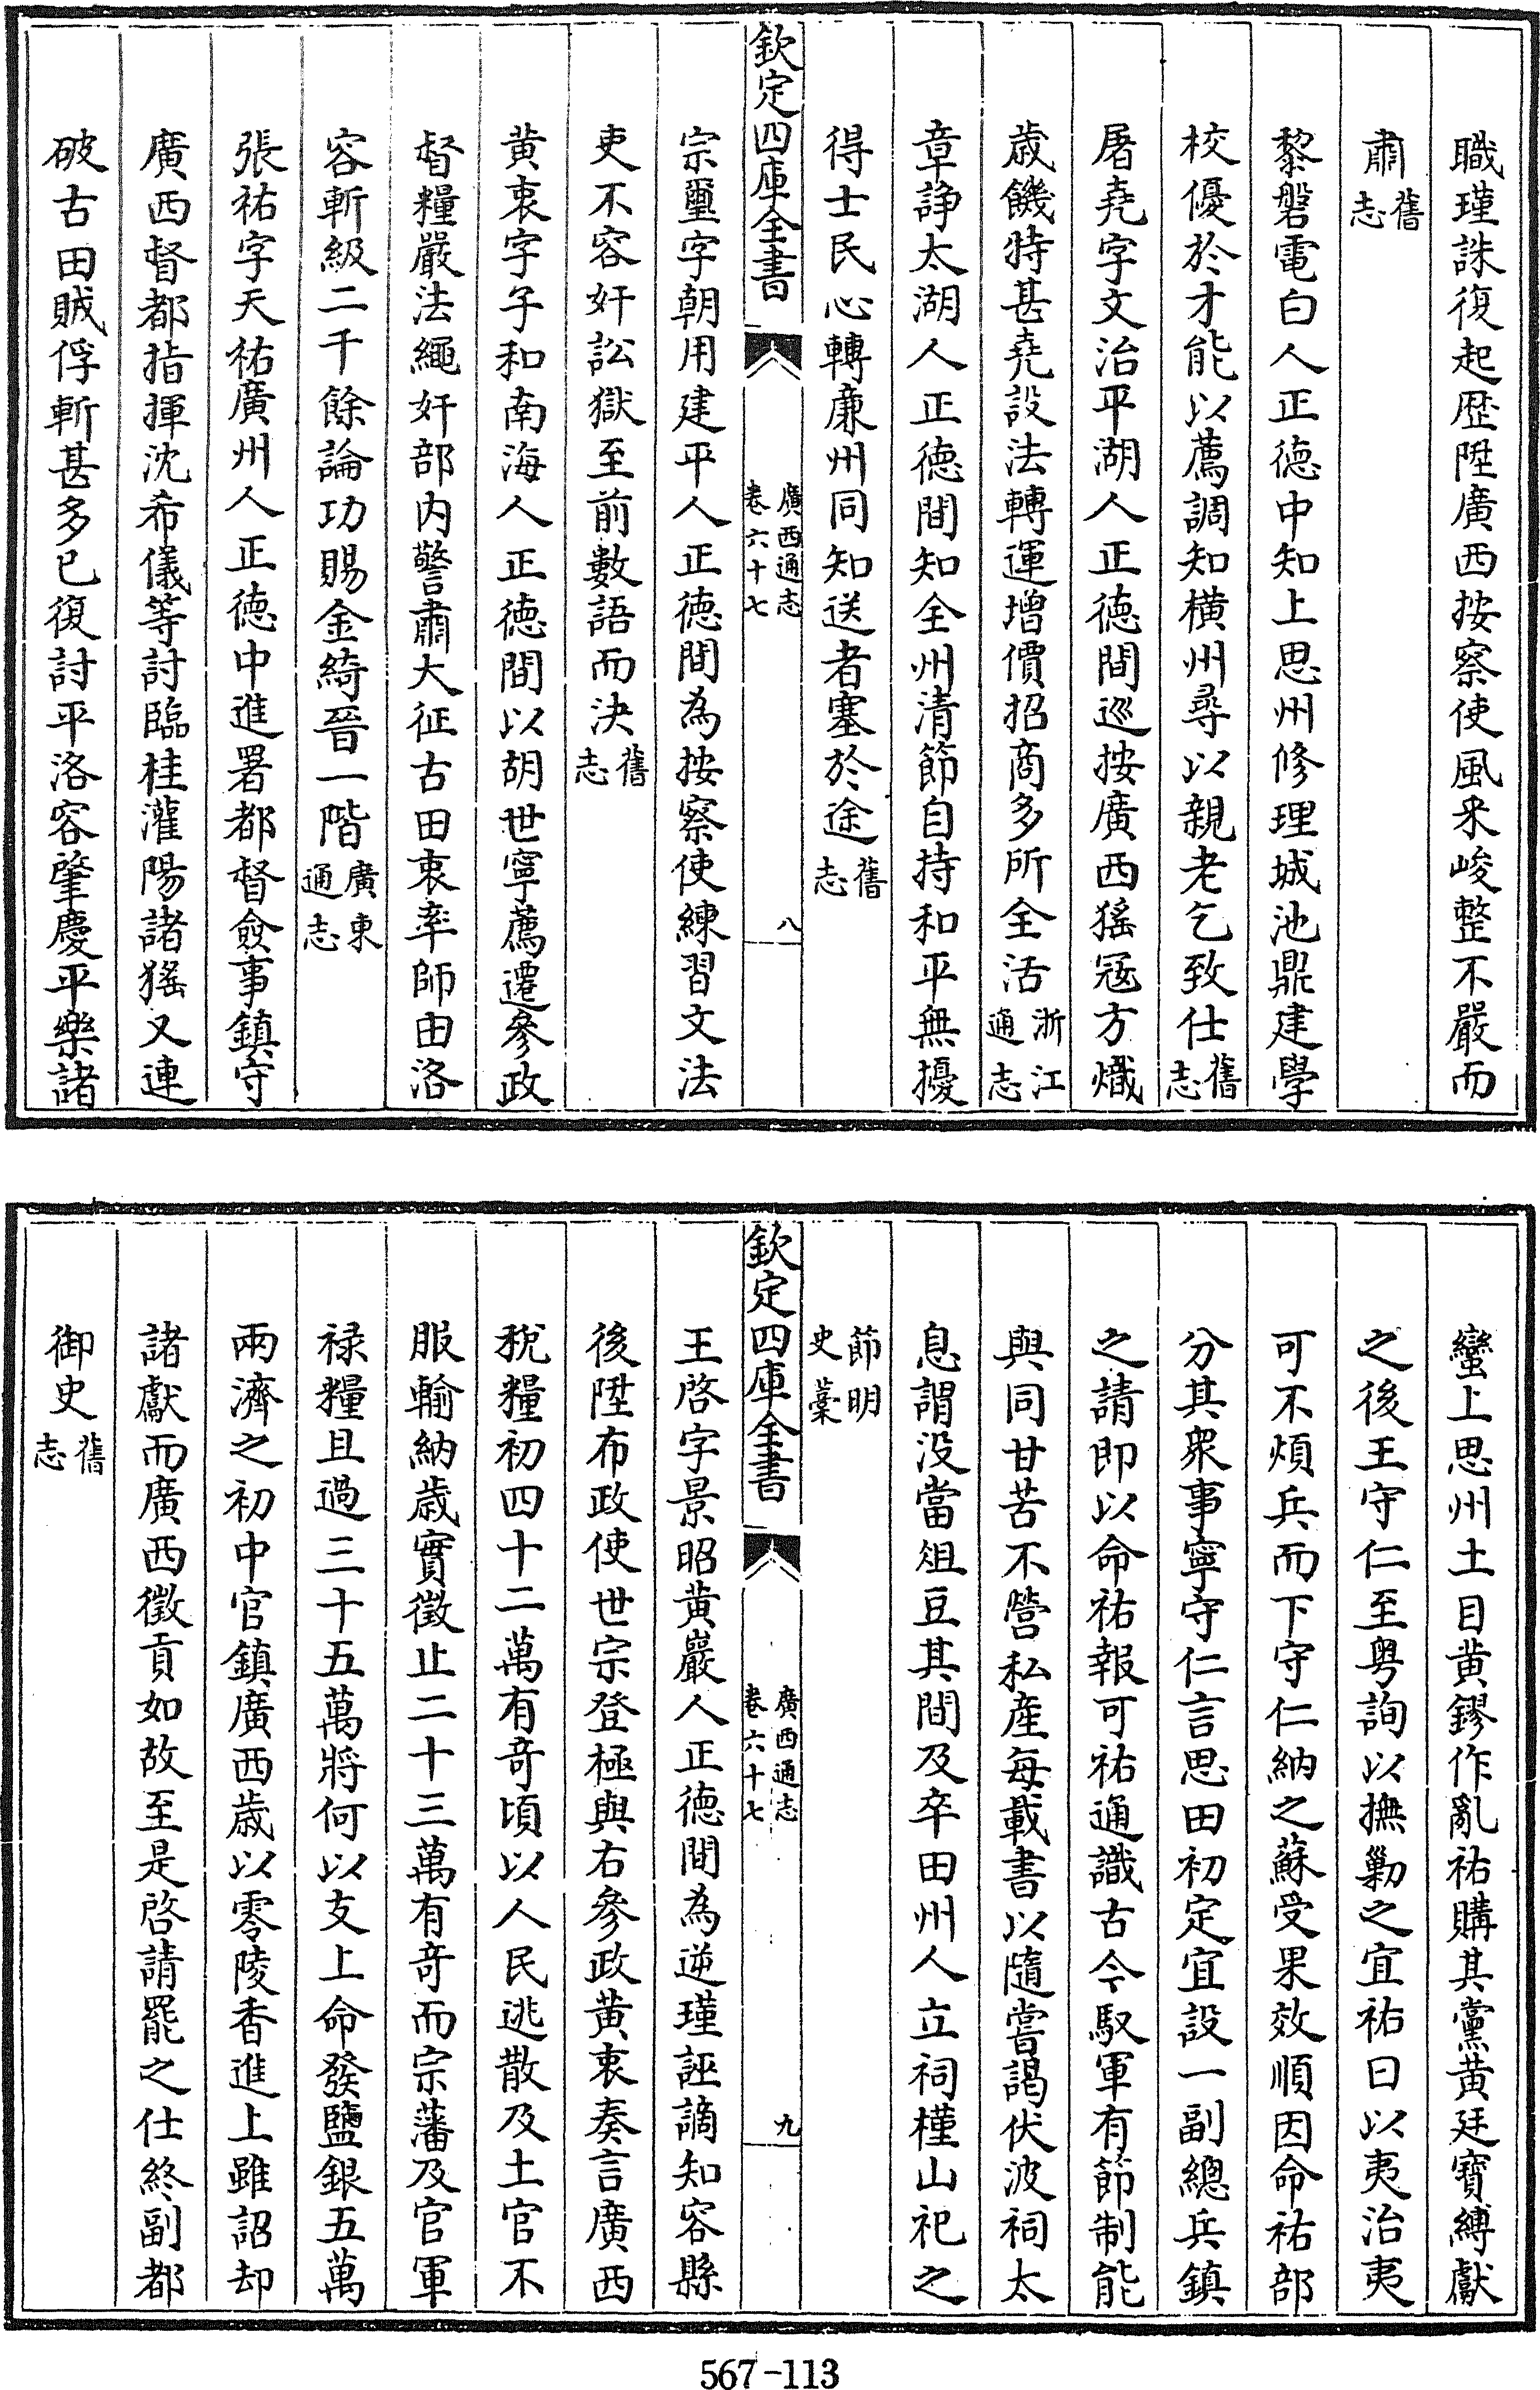 職瑾誅復起歴陞廣西按察使風采峻整不嚴而
肅舊志
黎磐電白人正德中知上思州修理城池鼎建學
校優於才能以薦調知橫州尋以親老乞致仕舊志
屠堯字文治平湖人正德間巡按廣西猺冦方熾
歲饑特甚堯設法轉運增價招商多所全活浙江通志
章諍太湖人正德間知全州清節自持和平無擾
得士民心轉亷州同知送者塞於途舊志
欽定四庫全書
廣西通志
卷六十七
八
宗璽字朝用建平人正德間為按察使練習文法
吏不容奸訟獄至前數語而決舊志
黄衷字子和南海人正德間以胡世寧薦遷參政
督糧嚴法繩奸部内警肅大征古田衷率師由洛
容斬級二千餘論功賜金綺晉一階廣東通志
張祐字天祐廣州人正德中進署都督僉事鎮守
廣西督都指揮沈希儀等討臨桂灌陽諸猺又連
破古田賊俘斬甚多已復討平洛容肇慶平樂諸
蠻上思州土目黄鏐作亂祐購其黨黄廷寶縛獻
之後王守仁至粤詢以撫勦之宜祐曰以夷治夷
可不煩兵而下守仁納之蘇受果效順因命祐部
分其衆事寧守仁言思田初定宜設一副總兵鎮
之請即以命祐報可祐通識古今馭軍有節制能
與同甘苦不營私産每載書以隨嘗謁伏波祠太
息謂没當俎豆其間及卒田州人立祠橫山祀之
節明史藁
欽定四庫全書
廣西通志
卷六十七
九
王啓字景昭黄巖人正德間為逆瑾誣謫知容縣
後陞布政使世宗登極與右參政黄衷奏言廣西
稅糧初四十二萬有奇頃以人民逃散及土官不
服輸納歲實徵止二十三萬有奇而宗藩及官軍
禄糧且過三十五萬將何以支上命發鹽銀五萬
兩濟之初中官鎮廣西歲以零陵香進上雖詔却
諸獻而廣西徵貢如故至是啓請罷之仕終副都
御史舊志
567-113